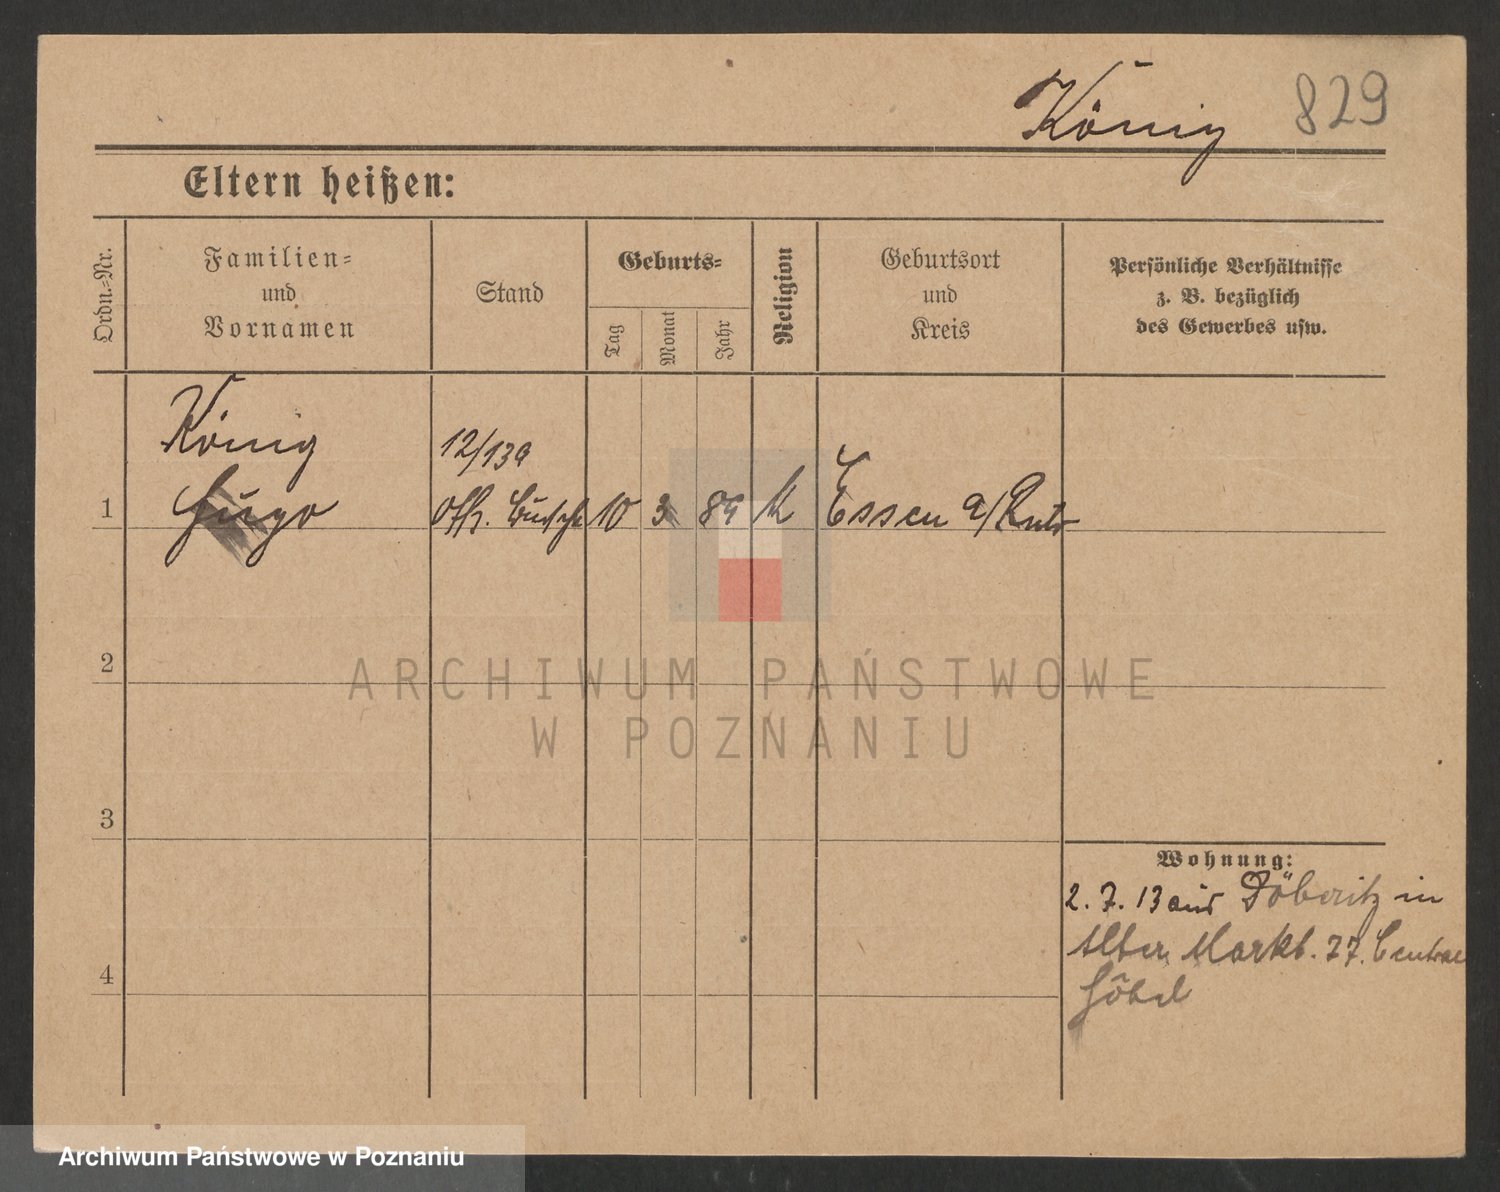 König 829
Eltern heißen:
Ordn.-Nr.
Familien-
und
Vornamen
Stand
Geburts-
Tag
Monat
Jahr
Religion
Geburtsort
und
Kreis
Persönliche Verhältnisse
z. B. bezüglich
des Gewerbes usw.
König
12/139
1 Hugo Off. Bursche 10 3 89 K Essen a/Ruhr
2
ARCHIWUM PAŃSTWOWE
W POZNANIU
3
Wohnung:
2. 7. 13 aus Döberitz in
Alter Markt. 77. Central
4
Archiwum Państwowe w Poznaniu